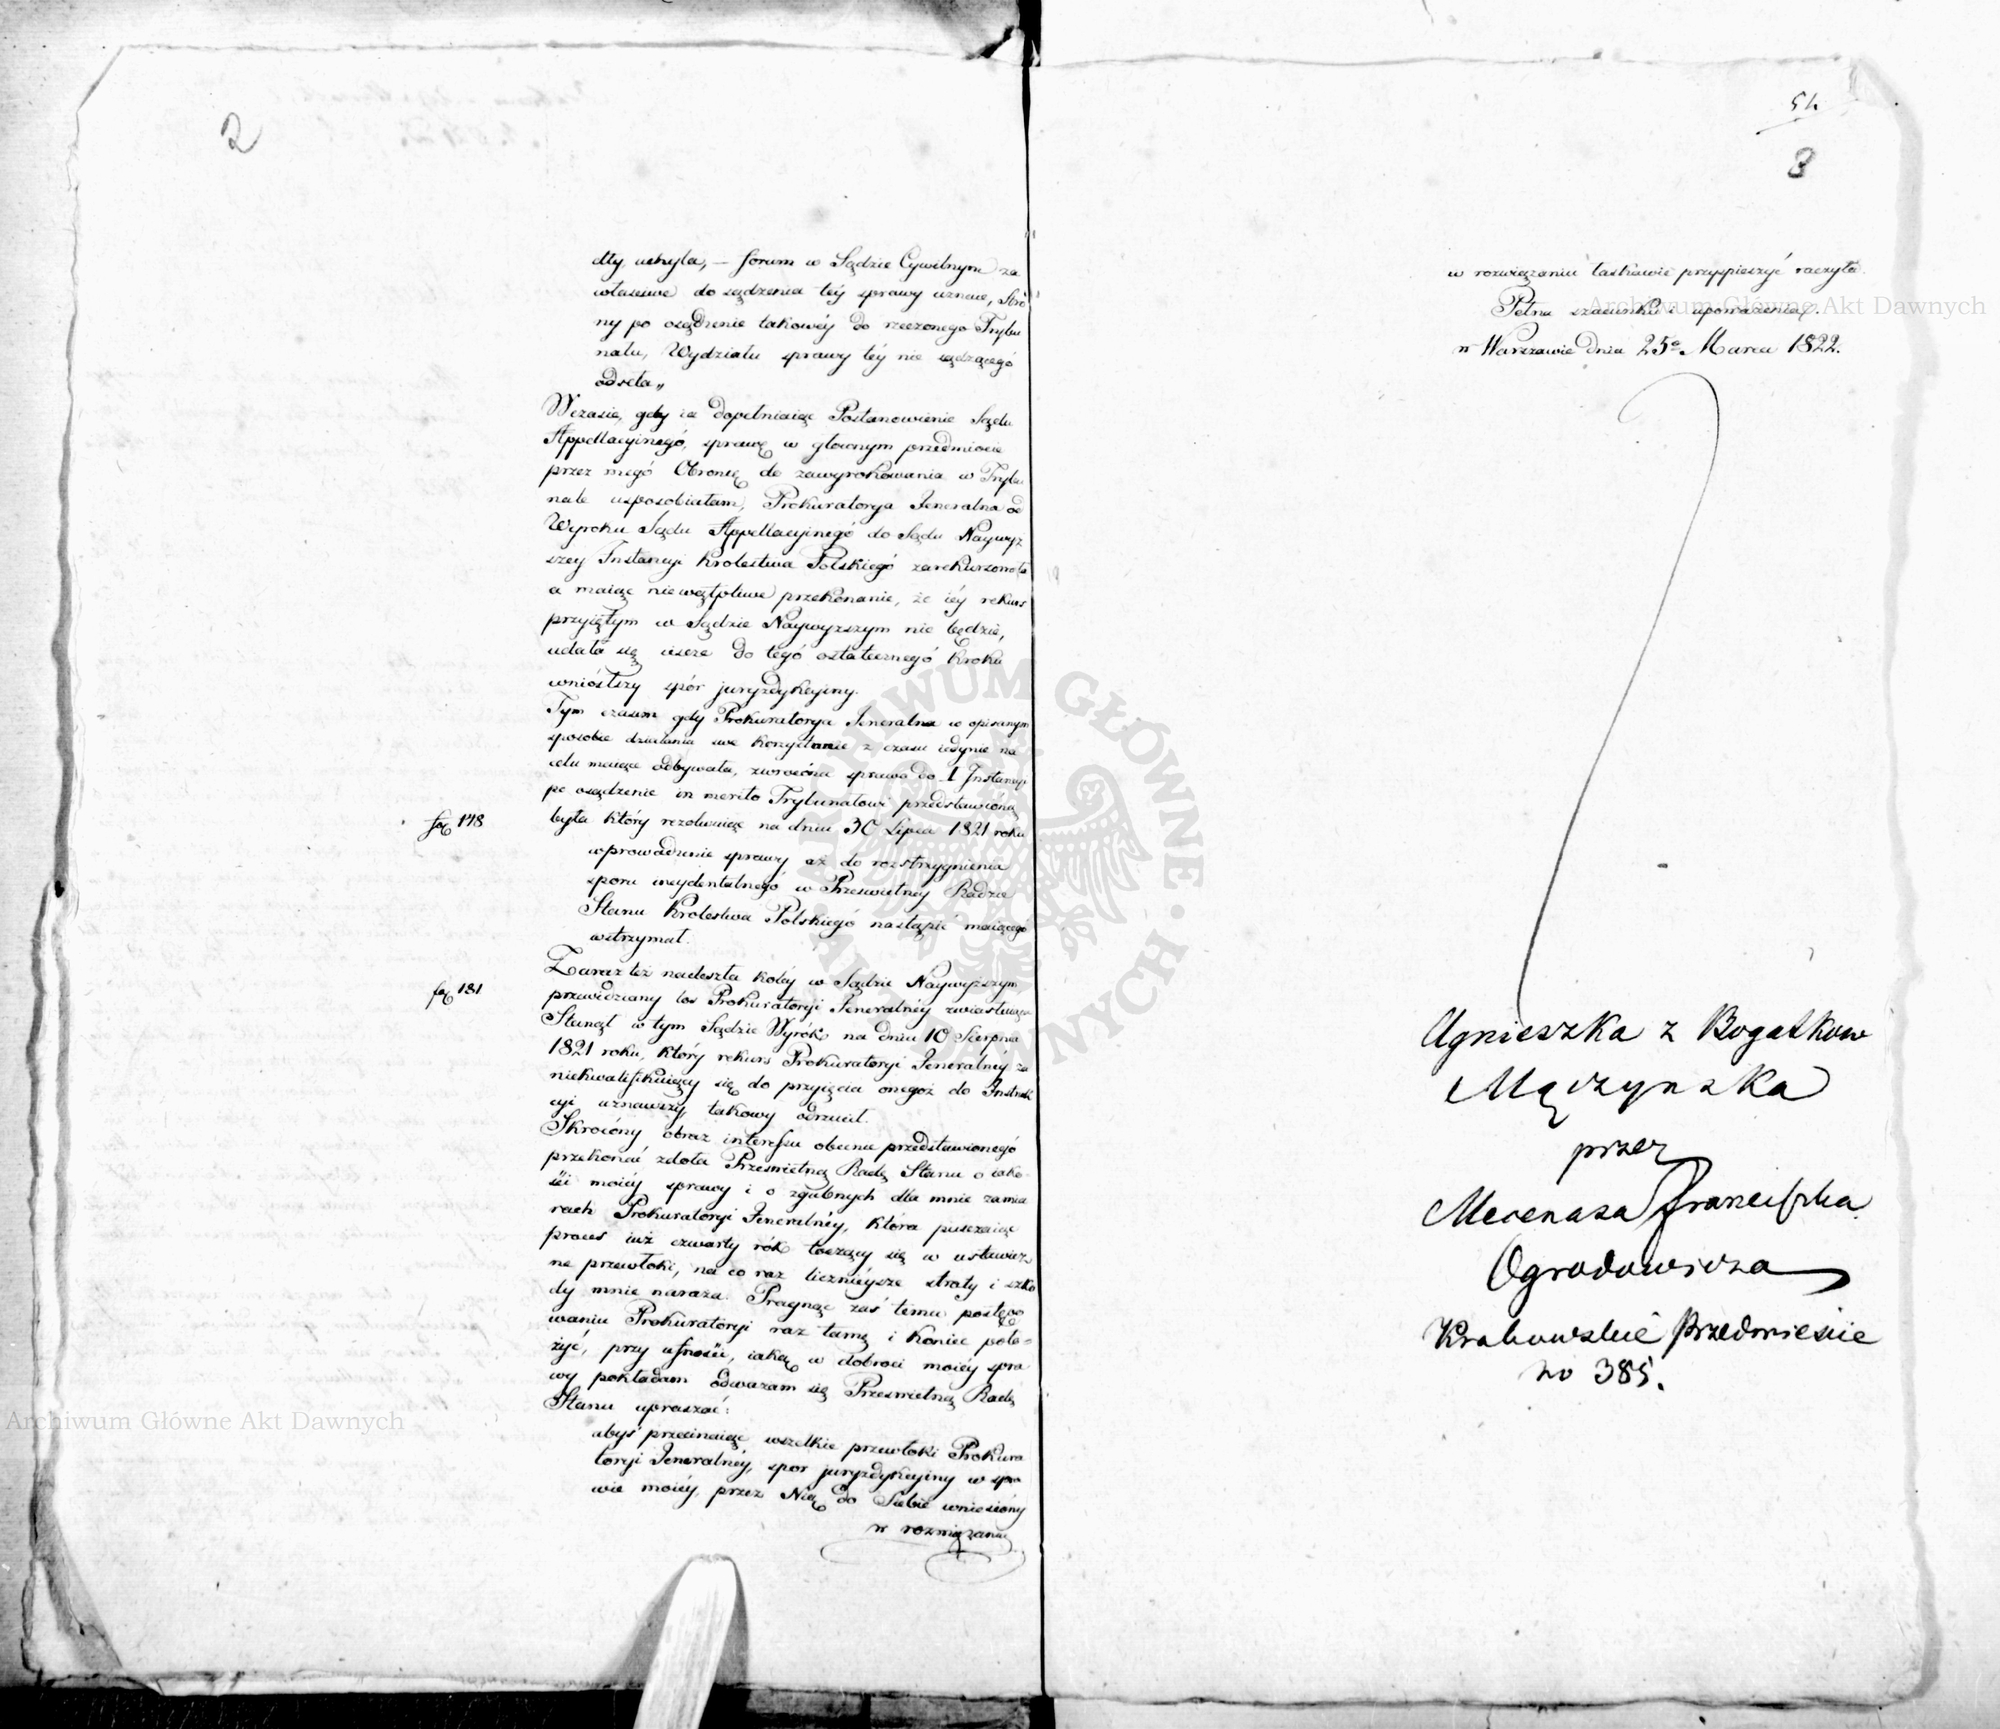 2
dły, uchyla, — forum w Sądzie Cywilnym za
właściwe do sądzenia téy sprawy uznaie, Stro
ny po osądzenie takowéy do rzeczonego Trybu
nału, Wydziału sprawy téy nie sądzącego
odseła„
W czasie, gdy ia dopełniaiąc Postanowienie Sądu
Appellacyinegó, sprawę w głównym przedmiocie
przez megó Obroncę do zawyrokowania w Trybu
nale usposobiałam, Prokuratorya Jeneralna od
Wyroku Sądu Appellacyinegó do Sądu Naywyz
szey Instancyi Krolestwa Polskiegó zarekursowała
a maiąc niewątpliwe przekonanie, że iéy rekurs
przyiętym w Sądzie Naywyzszym nie będzie,
udała się ieszcze do tegó ostatecznegó kroku
wniósłszy spór juryzdykcyiny.
Tym czasem gdy Prokuratorya Jeneralna w opisanym
sposobie działania swe korzystanie z czasu iedynie na
celu maiące odbywała, zwrócona sprawa do I Instancyi
po osądzenie in merito Trybunałowi przedstawioną
fol 178
była który rezolwuiąc na dniu 30 Lipca 1821 roku
wprowadzenie sprawy aż do rozstrzygnienia
sporu incydentalnegó w Prześwietney Radzie
Stanu Krolestwa Polskiegó nastąpić maiącegó
wstrzymał.
fol 181
Zaraz też nadeszła koléy w Sądzie Naywyższym
przewidziany los Prokuratoryi Jeneralnéy zwiastuiąca
Stanął w tym Sądzie Wyrók na dniu 10 Sierpnia
1821 roku, który rekurs Prokuratoryi Jeneralnéy za
niekwalifikuiący się do przyięcia onegoż do Instruk
cyi uznawszy, takowy odrzucił.
Skrócóny obraz interessu obecnie przedstawionegó
przekonać zdoła Prześwietną Radę Stanu o iako-
ści moiéy sprawy i o zgubnych dla mnie zamia
rach Prokuratoryi Jeneralnéy, która puszczaiąc
proces iuż czwarty rók toczący się w ustawicz
ne przewłoki, na co raz licznieysze straty i szko
dy mnie naraża. Pragnąc zaś temu postępo
waniu Prokuratoryi raz tamę i koniec poło-
żyć, przy ufności, iaką w dobroci moiéy spra
wy pokładam odważam się Prześwietną Radę
Stanu upraszać:
abyś przecinaiąc wszelkie przewłoki Prokura
toryi Jeneralnéy, spor juryzdykcyiny w spra
wie moiéy, przez Nią do Siebie wniesióny
w rozwiązaniu
54
8
w rozwiązaniu łaskawie przyspieszyć raczyła.
Pełna szacunku i upoważenia.
w Warszawie dnia 25o Marca 1822.
Agnieszka z Bogatkow
Mączynska
przez
Mecenasa Franciszka
Ogrodowicza
Krakowskie Przedmiescie
no 385.
Archiwum Główne Akt Dawnych
Archiwum Główne Akt Dawnych
ARCHIWUM GŁÓWNE AKT DAWNYCH